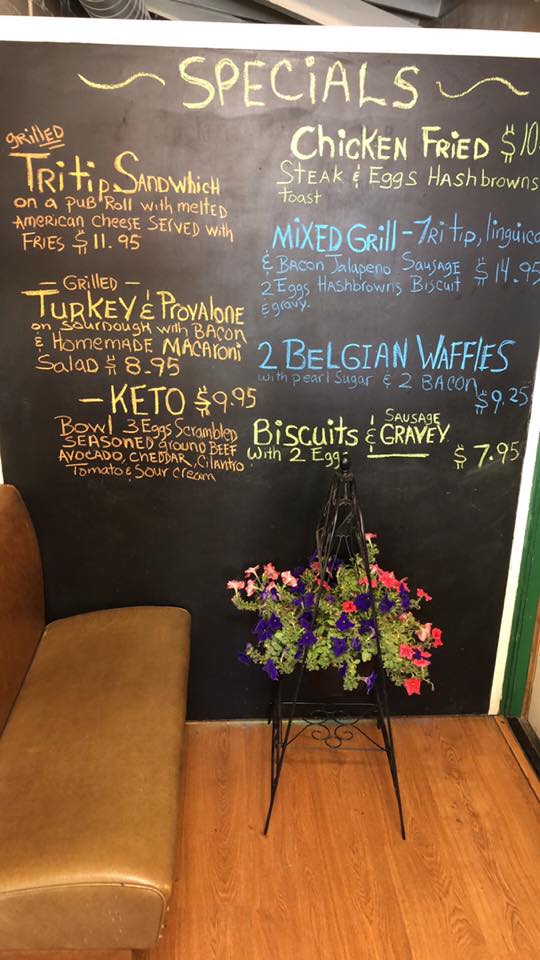 SPECIALS
grillED
TRitip SANDWhich
on a puB Roll with melted
AmericAn Cheese SERVED with
FRIES $11.95
- GRilled -
TURKEY & PROVAlONE
on SOURDough with BACON
& HOMEMADE MACARONi
SalaD $ 8.95
- KETO $9.95
Bowl 3 Eggs Scrambled
SEASONED ground BEEF
AVOCADO, CHEDDAR, Cilantro
Tomato & Sour cream
Chicken FRiED $10
STEAK & Eggs HASHbrowns
toast
MIXED GRill - TRi tip, linguica
& BACON Jalapeno SAUSAGE $14.95
2 Eggs HASHbrowns BiscuiT
& gravy.
2 BELGIAN WAFFLES
with pearl Sugar & 2 BACON
$9.25
BiscuiTs & SAUSAGE GRAVEY
with 2 Eggs
$7.95